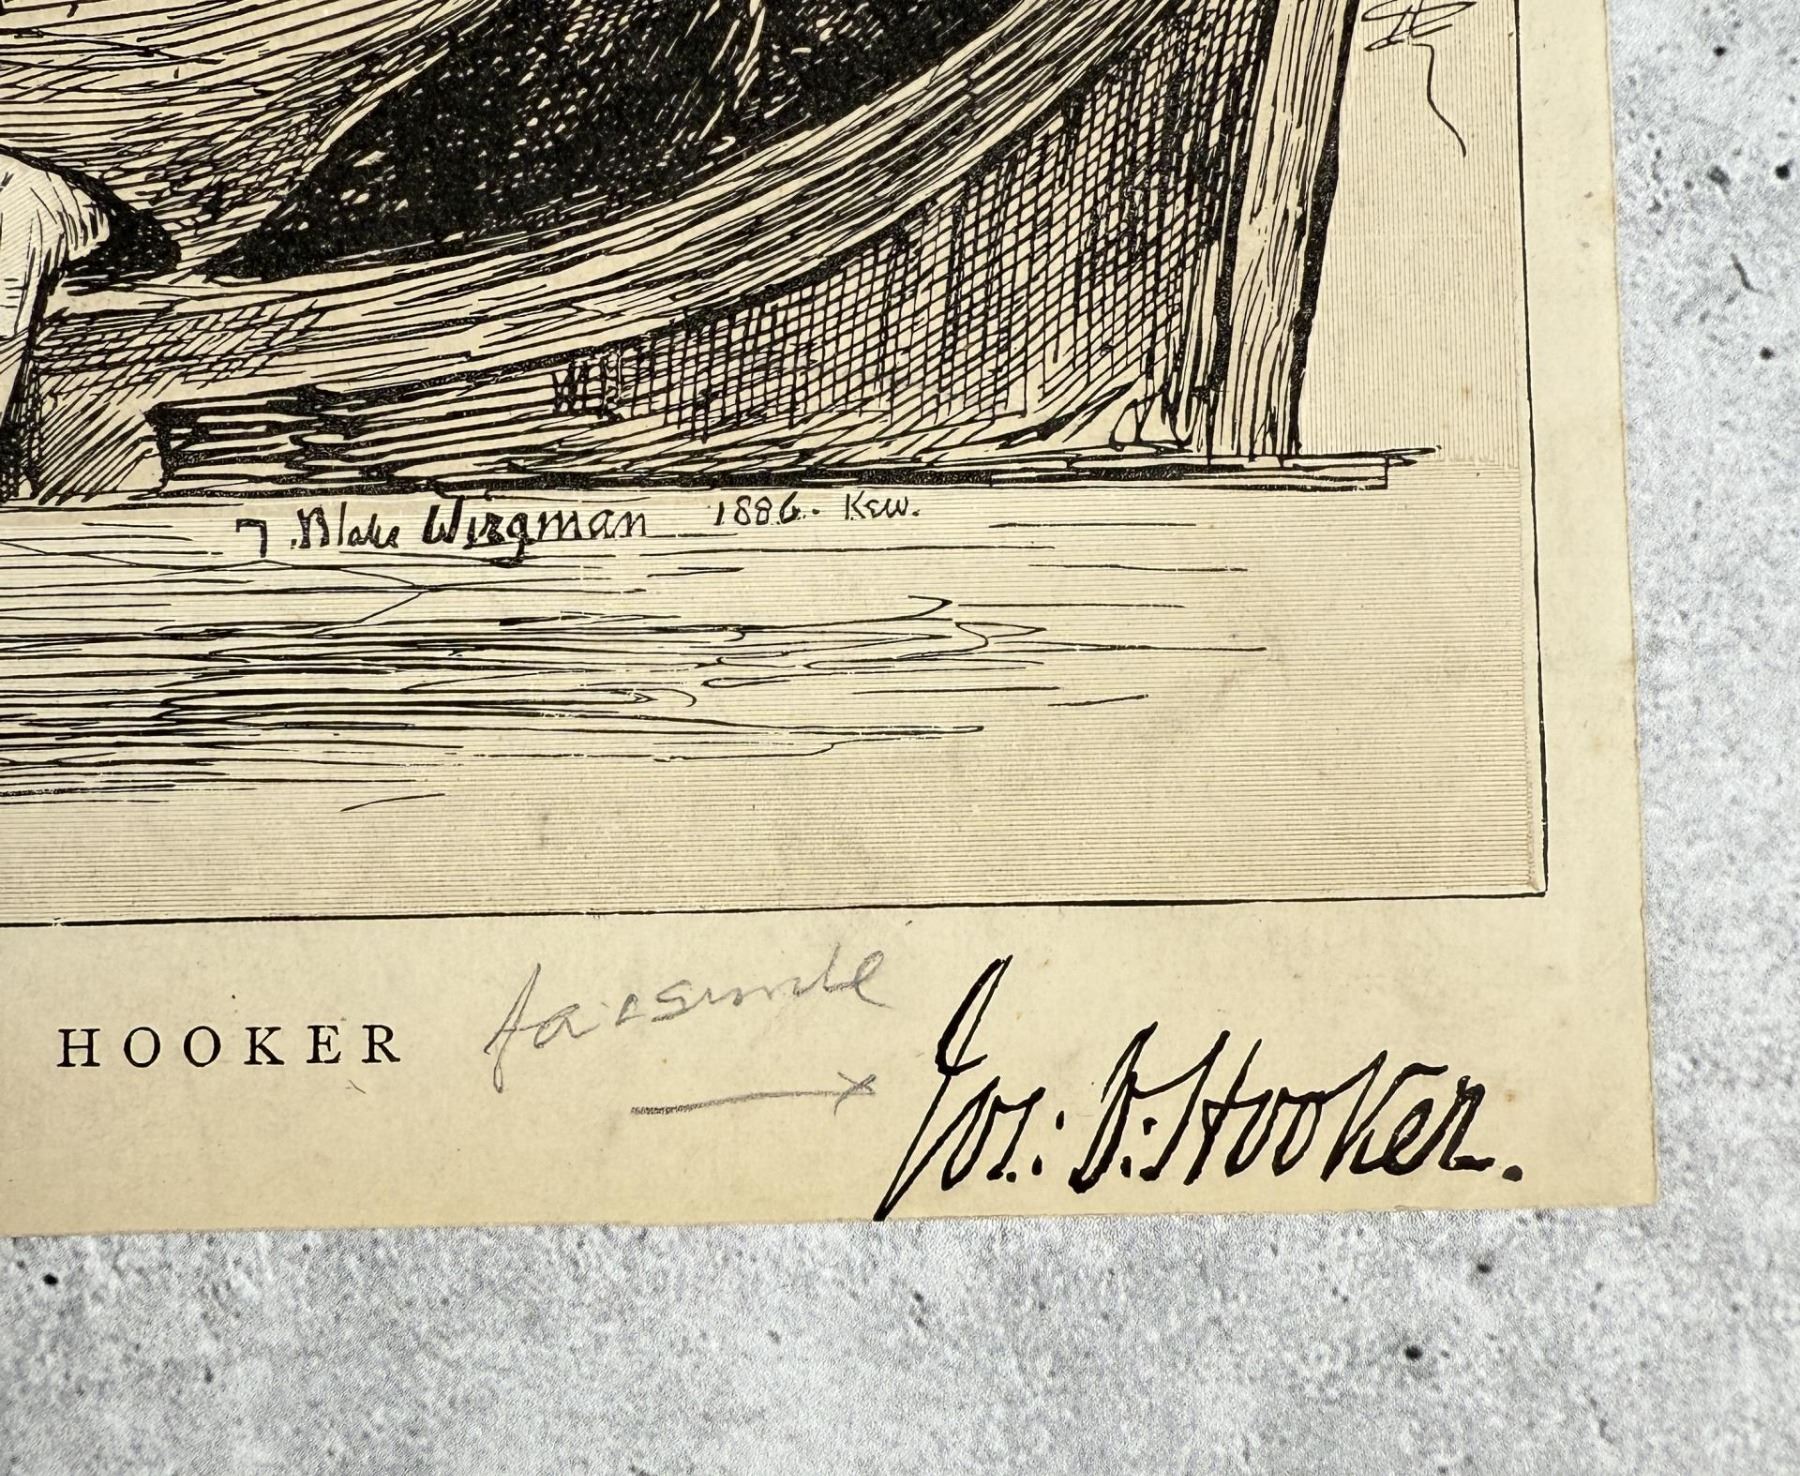 T. Blake Wirgman 1886. Kew.
facsimile
HOOKER
Jos: D: Hooker.